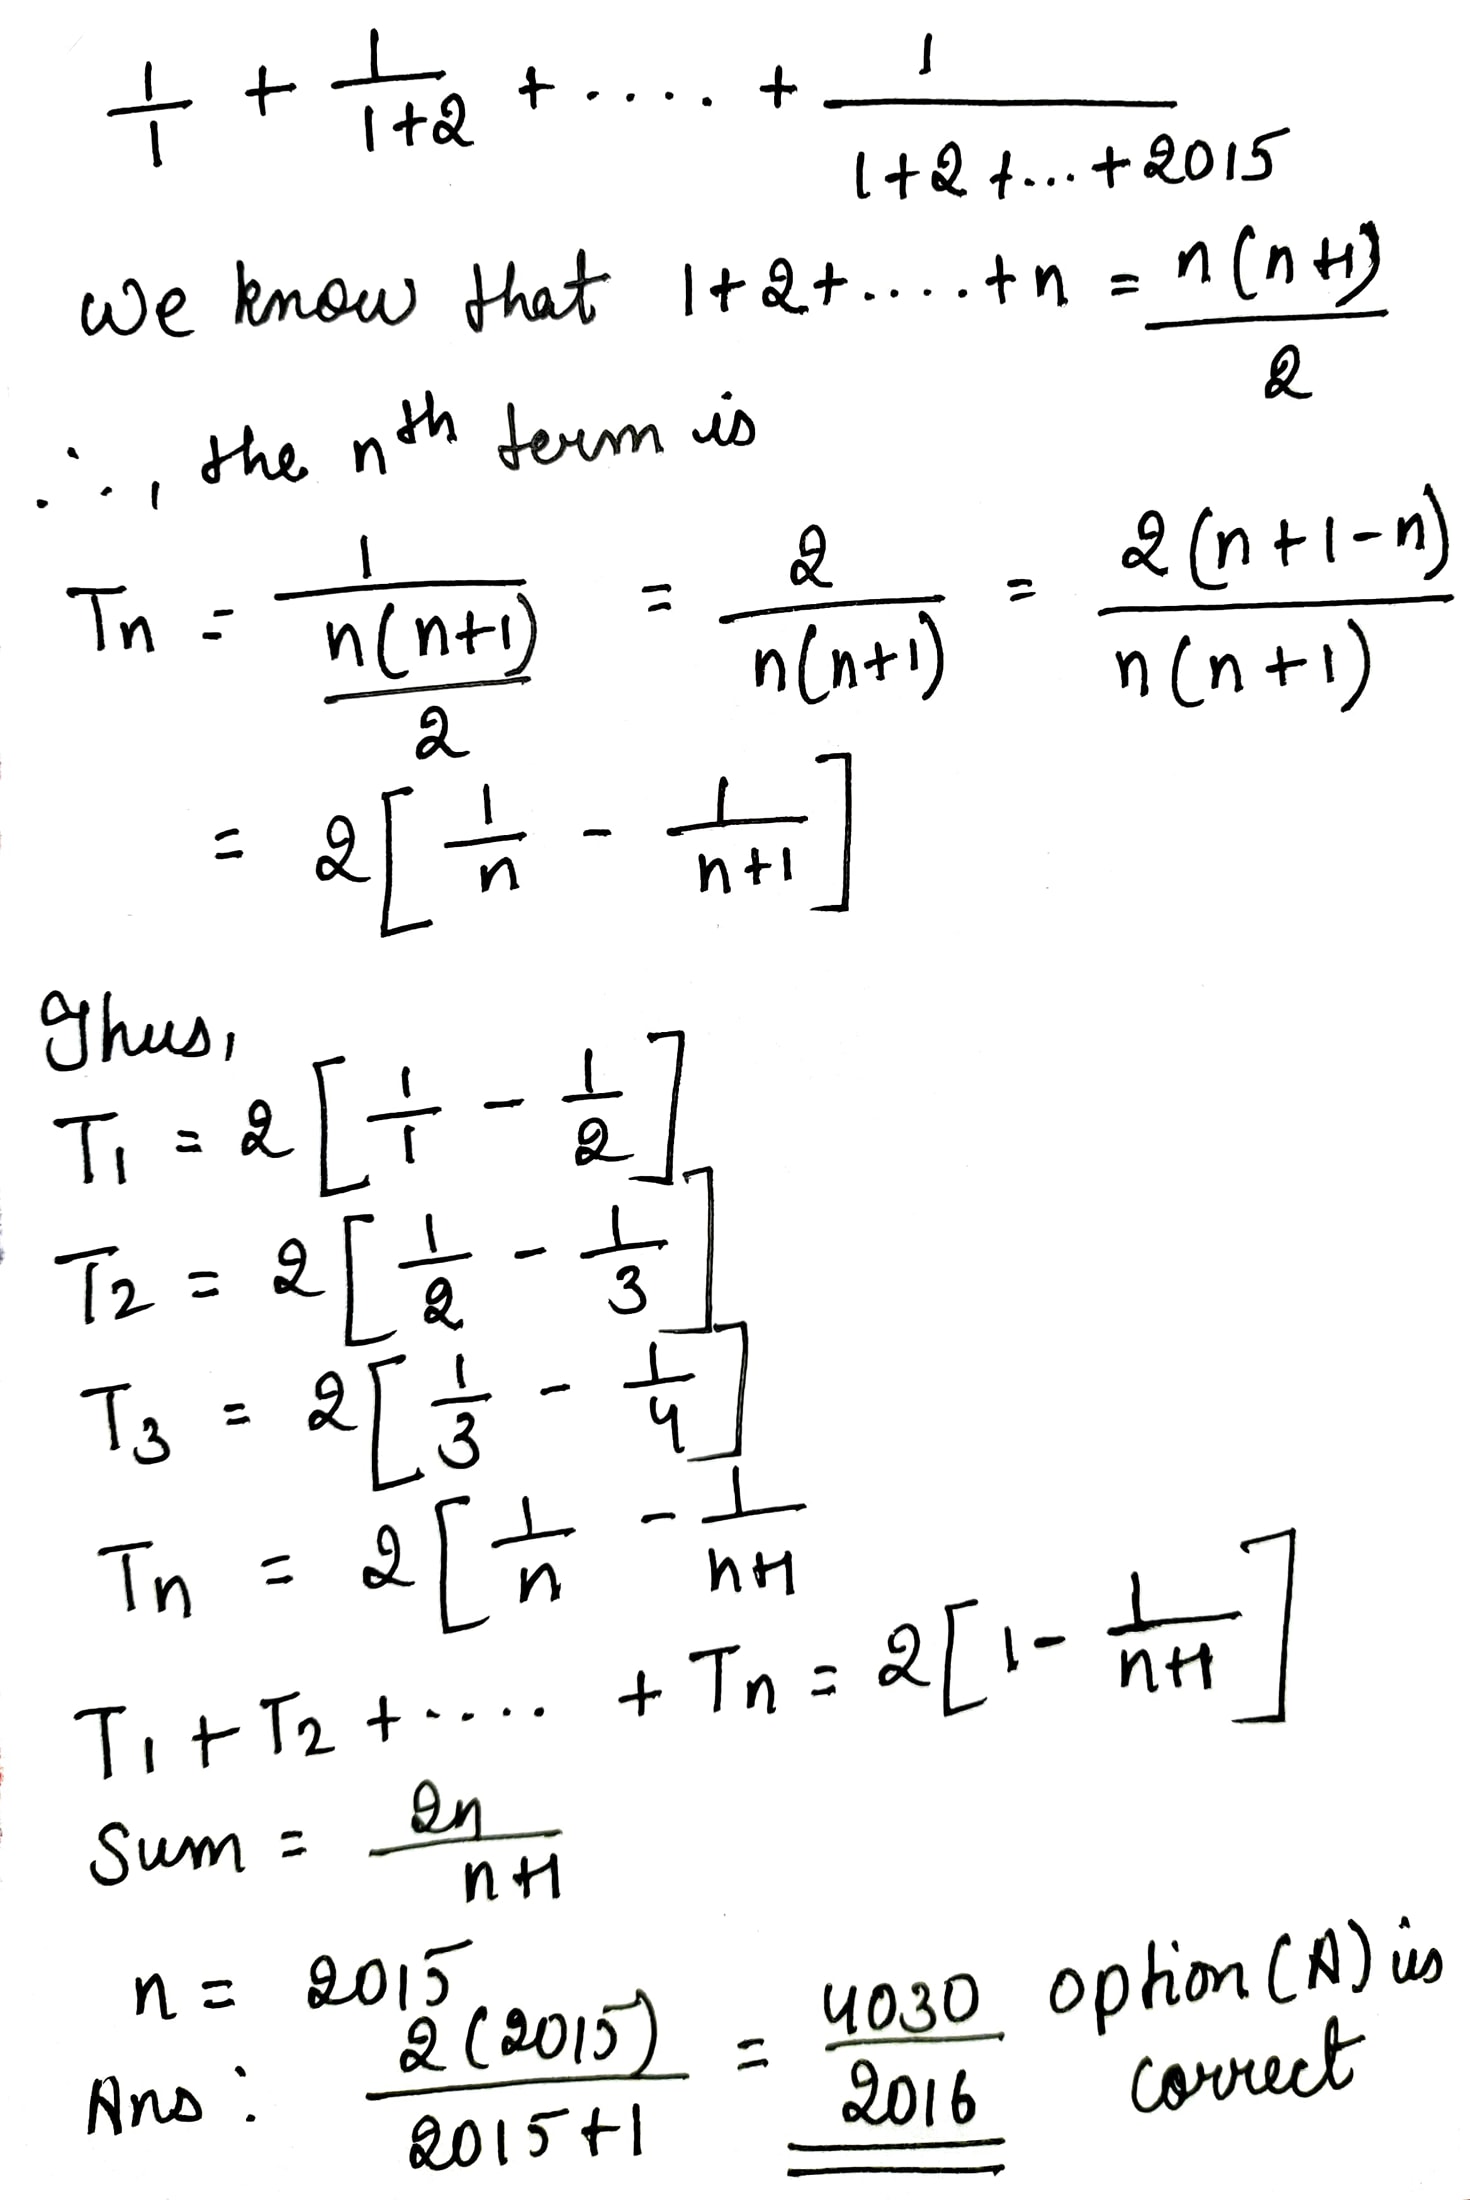 1/1 + 1/(1+2) + ..... + 1/(1+2+...+2015)
we know that 1+2+.....+n = n(n+1)/2
∴, the nth term is
Tn = 1/(n(n+1)/2) = 2/(n(n+1)) = 2(n+1-n)/(n(n+1))
= 2[1/n - 1/(n+1)]
Thus,
T1 = 2[1/1 - 1/2]
T2 = 2[1/2 - 1/3]
T3 = 2[1/3 - 1/4]
Tn = 2[1/n - 1/(n+1)
T1 + T2 + ..... + Tn = 2[1 - 1/(n+1)]
Sum = 2n/(n+1)
n = 2015
Ans : 2(2015)/(2015+1) = 4030/2016 option (A) is correct